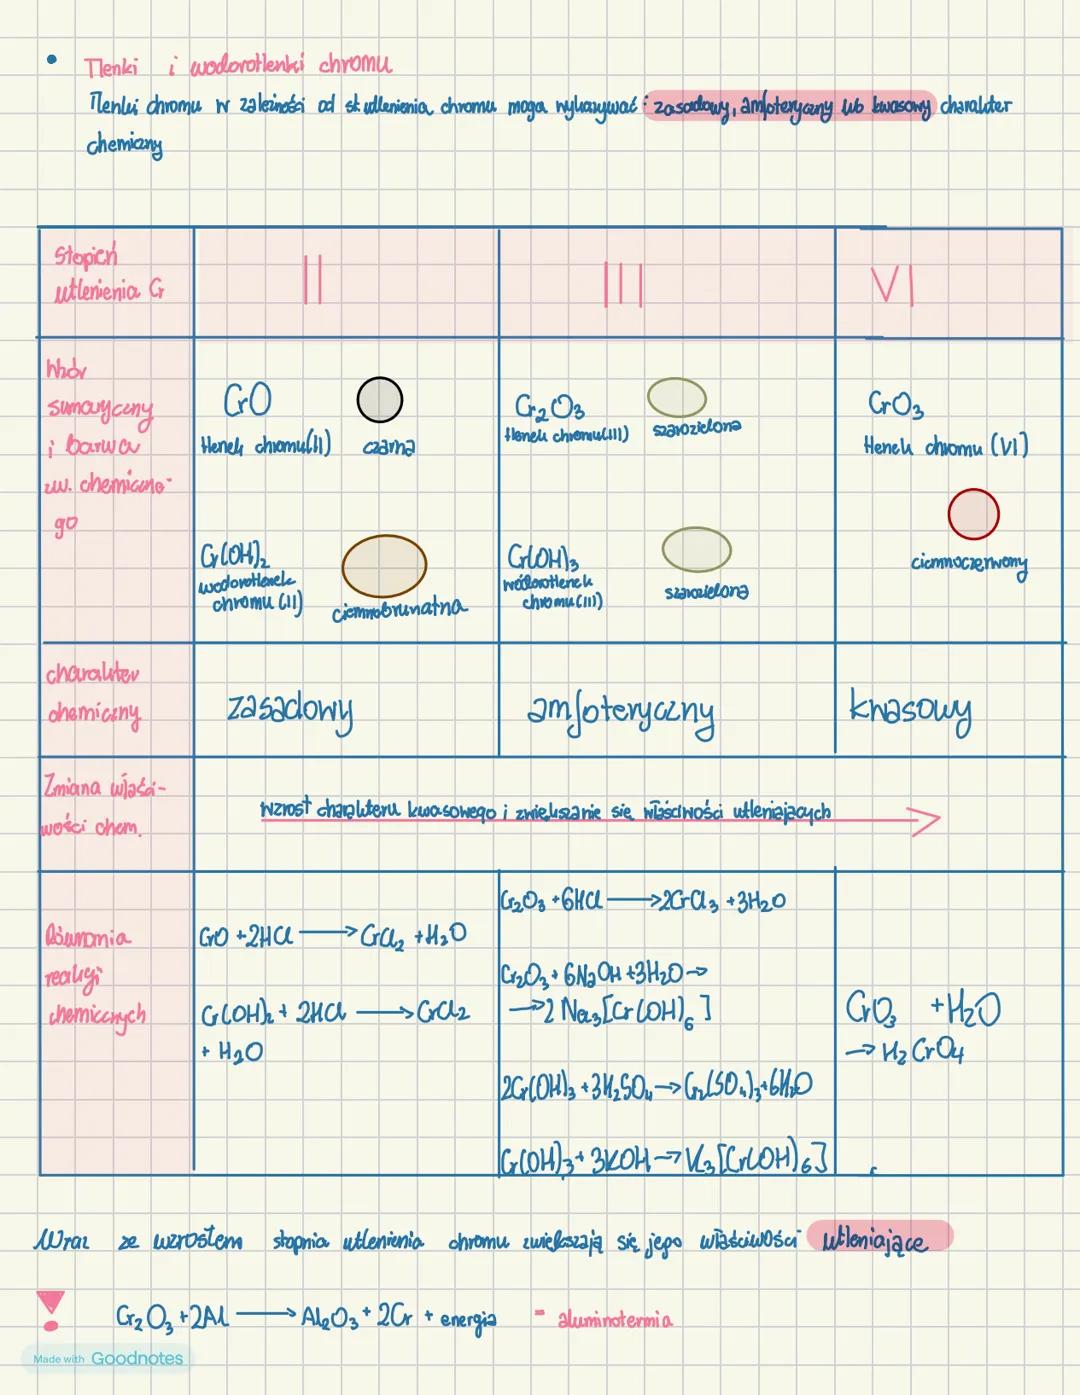 • Tlenki i wodorotlenki chromu
Tlenki chromu w zależności od st. utlenienia chromu mogą wykazywać: zasadowy, amfoteryczny lub kwasowy charakter
chemiczny
Stopień
utlenienia Cr
II
III
VI
Wzór
sumaryczny
i barwa
zw. chemiczne-
go
CrO
tlenek chromu(II)
czarna
Cr(OH)₂
wodorotlenek
chromu (II)
ciemnobrunatna
Cr₂O₃
tlenek chromu(III)
szarozielona
Cr(OH)₃
wodorotlenek
chromu(III)
szarozielona
CrO₃
tlenek chromu (VI)
ciemnoczerwony
charakter
chemiczny
zasadowy
amfoteryczny
kwasowy
Zmiana właści-
wości chem.
wzrost charakteru kwasowego i zwiększanie się właściwości utleniających
Równania
reakcji
chemicznych
CrO + 2HCl → CrCl₂ + H₂O
Cr(OH)₂ + 2HCl → CrCl₂
+ H₂O
Cr₂O₃ + 6HCl → 2CrCl₃ + 3H₂O
Cr₂O₃ + 6NaOH + 3H₂O →
→ 2 Na₃[Cr(OH)₆]
2Cr(OH)₃ + 3H₂SO₄ → Cr₂(SO₄)₃ + 6H₂O
Cr(OH)₃ + 3KOH → K₃[Cr(OH)₆]
CrO₃ + H₂O
→ H₂CrO₄
Wraz ze wzrostem stopnia utlenienia chromu zwiększają się jego właściwości utleniające
Cr₂O₃ + 2Al → Al₂O₃ + 2Cr + energia - aluminotermia
Made with Goodnotes